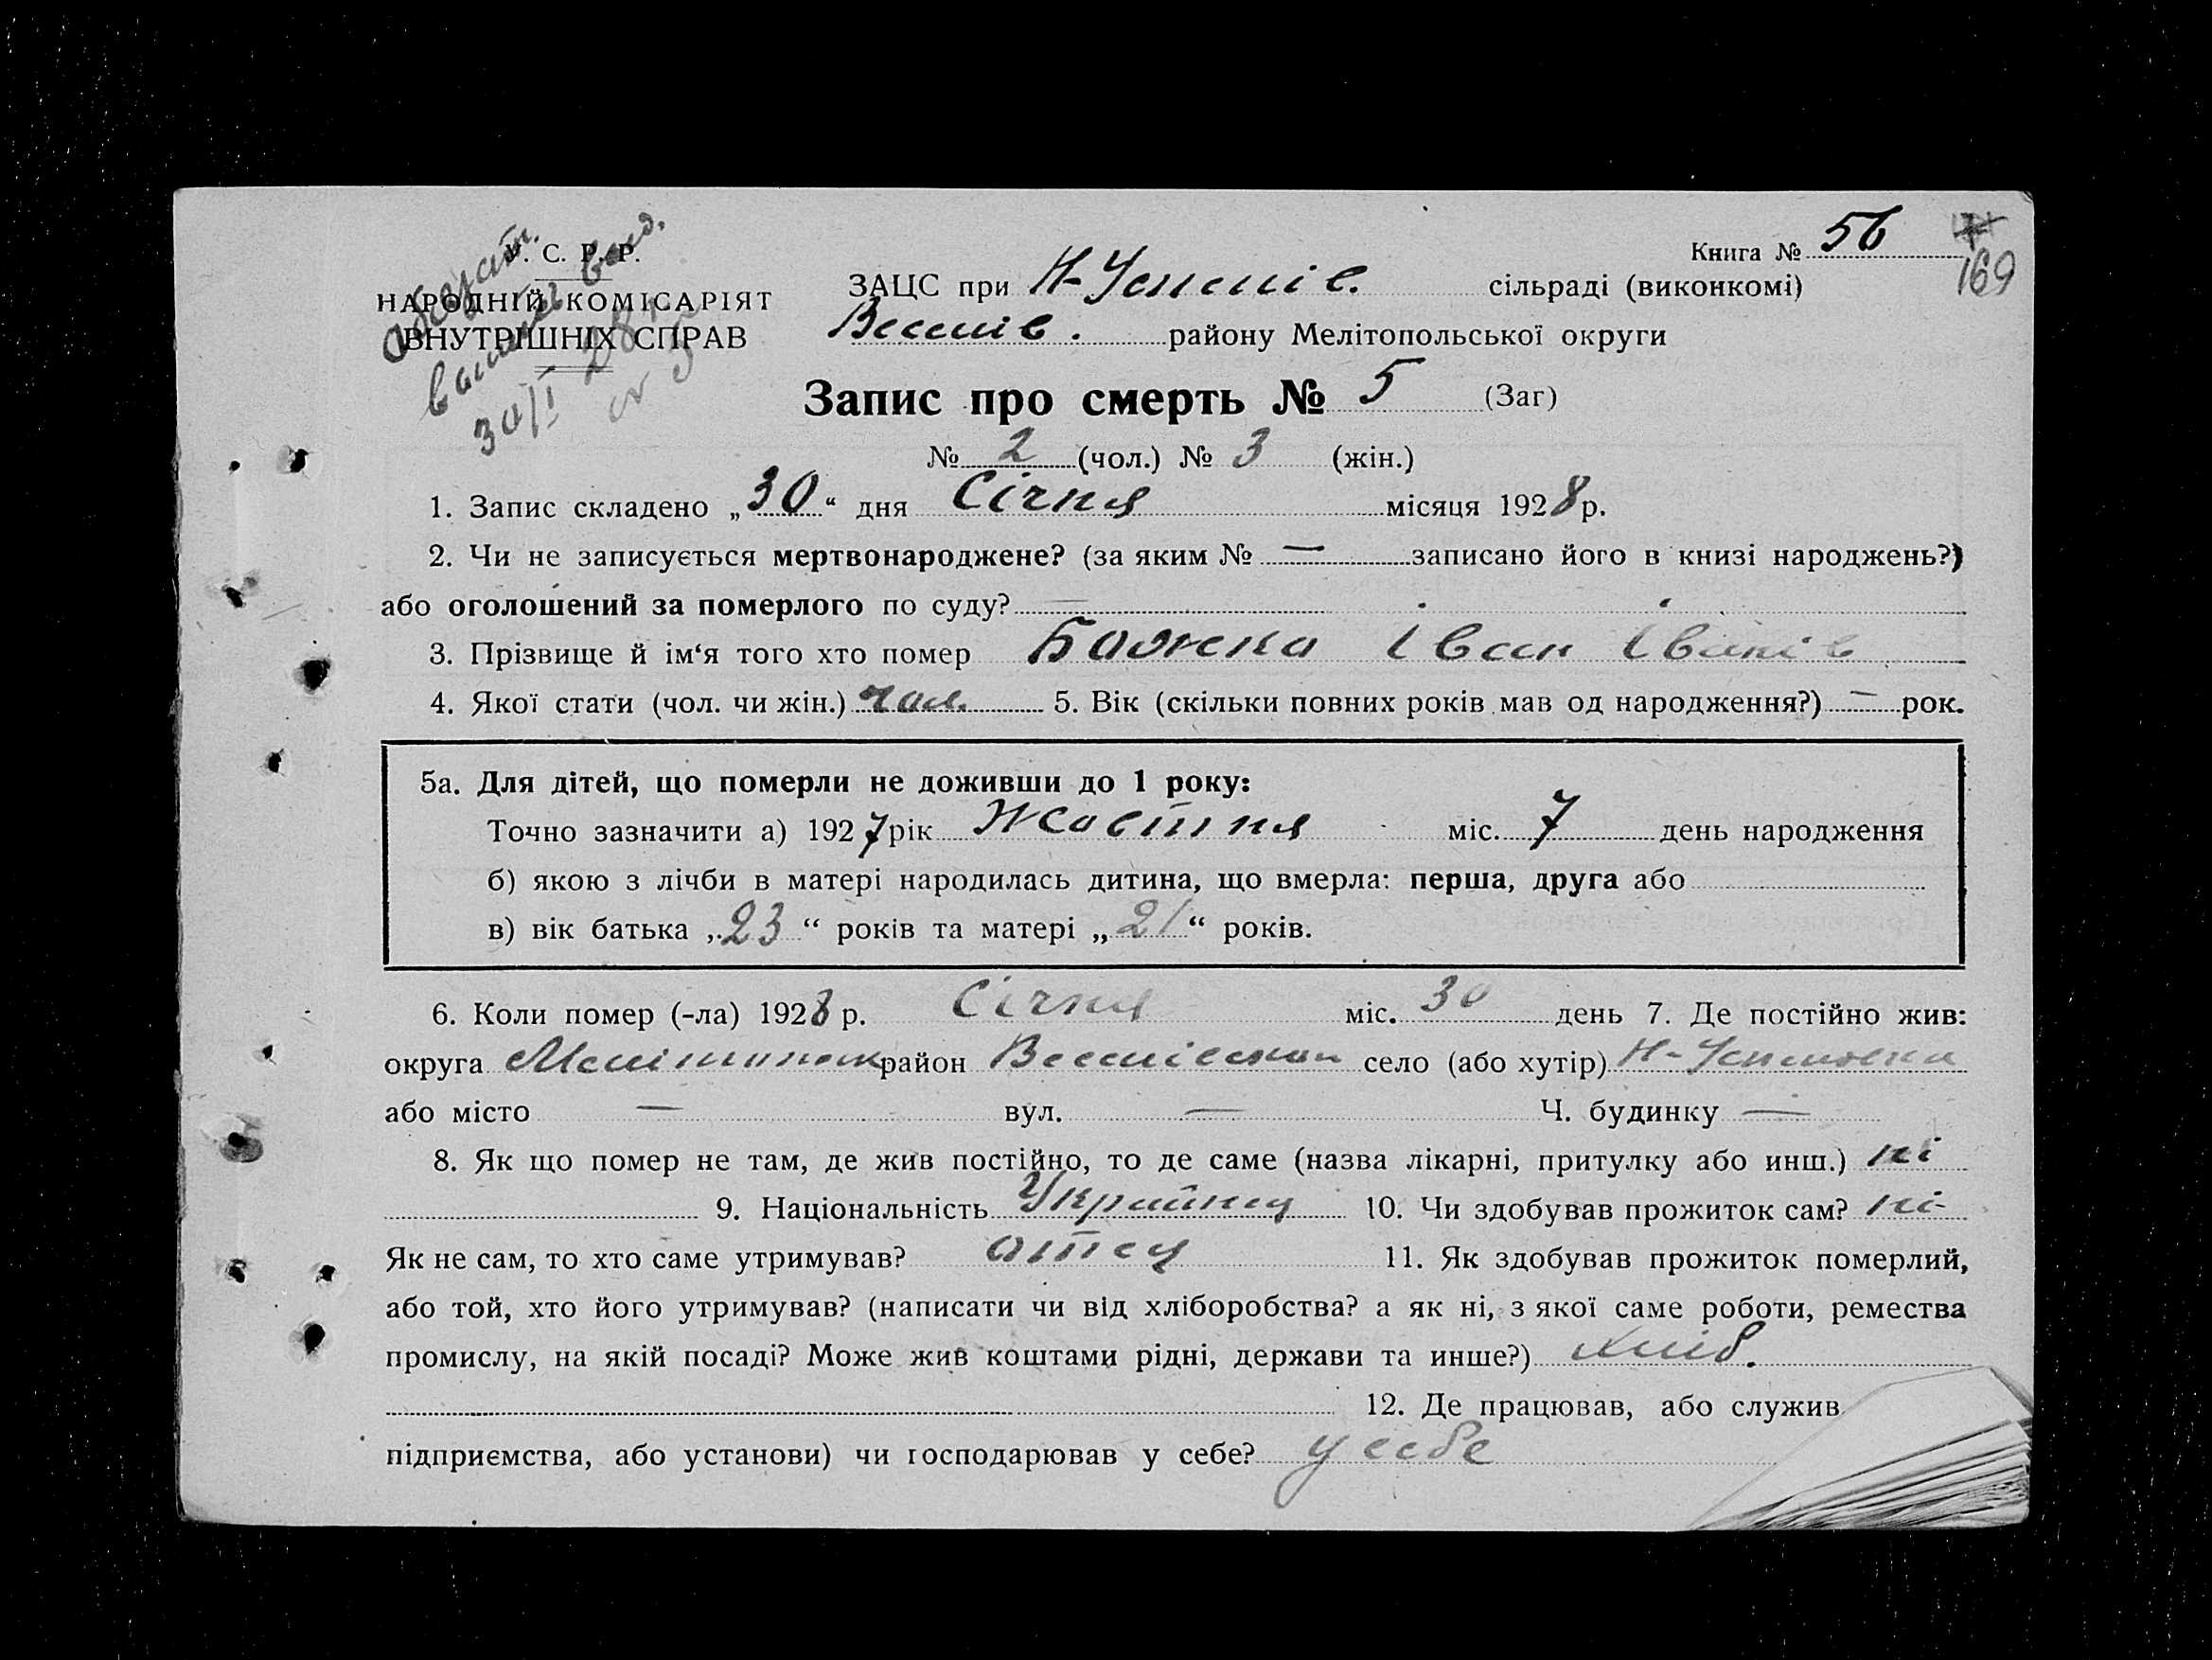 У. С. Р. Р.
НАРОДНІЙ КОМІСАРІЯТ
ВНУТРІШНІХ СПРАВ
30/І 28
№ 5
Книга № 56
169
ЗАЦС при Н-Успенів. сільраді (виконкомі)
Веселів. району Мелітопольської округи
Запис про смерть № 5 (Заг)
№ 2 (чол.) № 3 (жін.)
1. Запис складено „30“ дня Січня місяця 1928 р.
2. Чи не записується мертвонароджене? (за яким № — записано його в книзі народжень?)
або оголошений за померлого по суду? —
3. Прізвище й ім‘я того хто помер Божка Іван Іванів
4. Якої стати (чол. чи жін.) чол. 5. Вік (скільки повних років мав од народження?) — рок.
5а. Для дітей, що померли не доживши до 1 року:
Точно зазначити а) 1927 рік Жовтня міс. 7 день народження
б) якою з лічби в матері народилась дитина, що вмерла: перша, друга або
в) вік батька „23“ років та матері „21“ років.
6. Коли помер (-ла) 1928 р. Січня міс. 30 день 7. Де постійно жив:
округа Мелітопол район Веселівськ село (або хутір) Н-Успеновка
або місто — вул. — Ч. будинку —
8. Як що помер не там, де жив постійно, то де саме (назва лікарні, притулку або инш.) ні
9. Національність Українец 10. Чи здобував прожиток сам? ні
Як не сам, то хто саме утримував? отец 11. Як здобував прожиток померлий,
або той, хто його утримував? (написати чи від хліборобства? а як ні, з якої саме роботи, ремества
промислу, на якій посаді? Може жив коштами рідні, держави та инше?) хліб.
12. Де працював, або служив
підприємства, або установи) чи господарював у себе? у себе